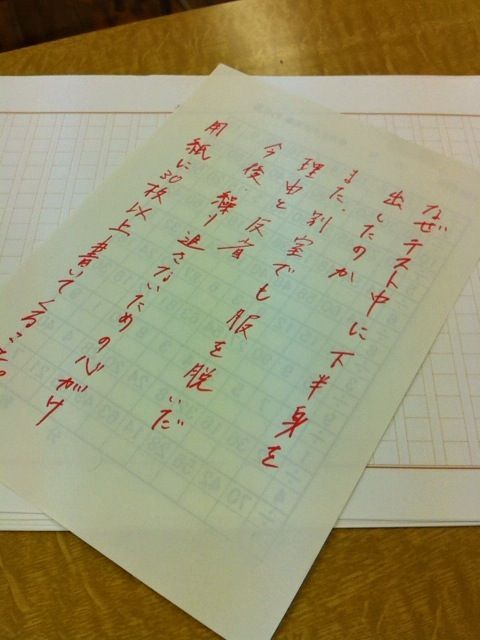 なぜテスト中に下半身を
出したのか
また、別室でも服を脱いだ
理由と反省
今後繰り返さないための心がけ
用紙に30枚以上書いてくること。